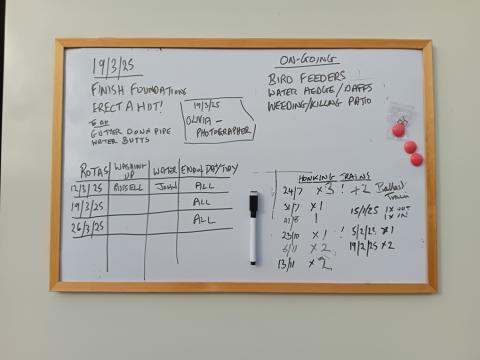 19/3/25
FINISH FOUNDATIONS
ERECT A HUT!
TO DO
GUTTER DOWN PIPE
WATER BUTTS
19/3/25
OLIVIA -
PHOTOGRAPHER
ON-GOING
BIRD FEEDERS
WATER HEDGE/DAFFS
WEEDING/KILLING PATIO
ROTAS WASHING UP WATER END OF DAY TIDY
12/3/25 RUSSELL JOHN ALL
19/3/25 ALL
26/3/25 ALL
HONKING TRAINS
24/7 x3! +2 Ballast Train
31/7 x1
1 15/1/25 1X OUT
1X IN
23/10 x1 ! 5/2/25 x1
6/11 x2 19/2/25 x2
13/11 x2